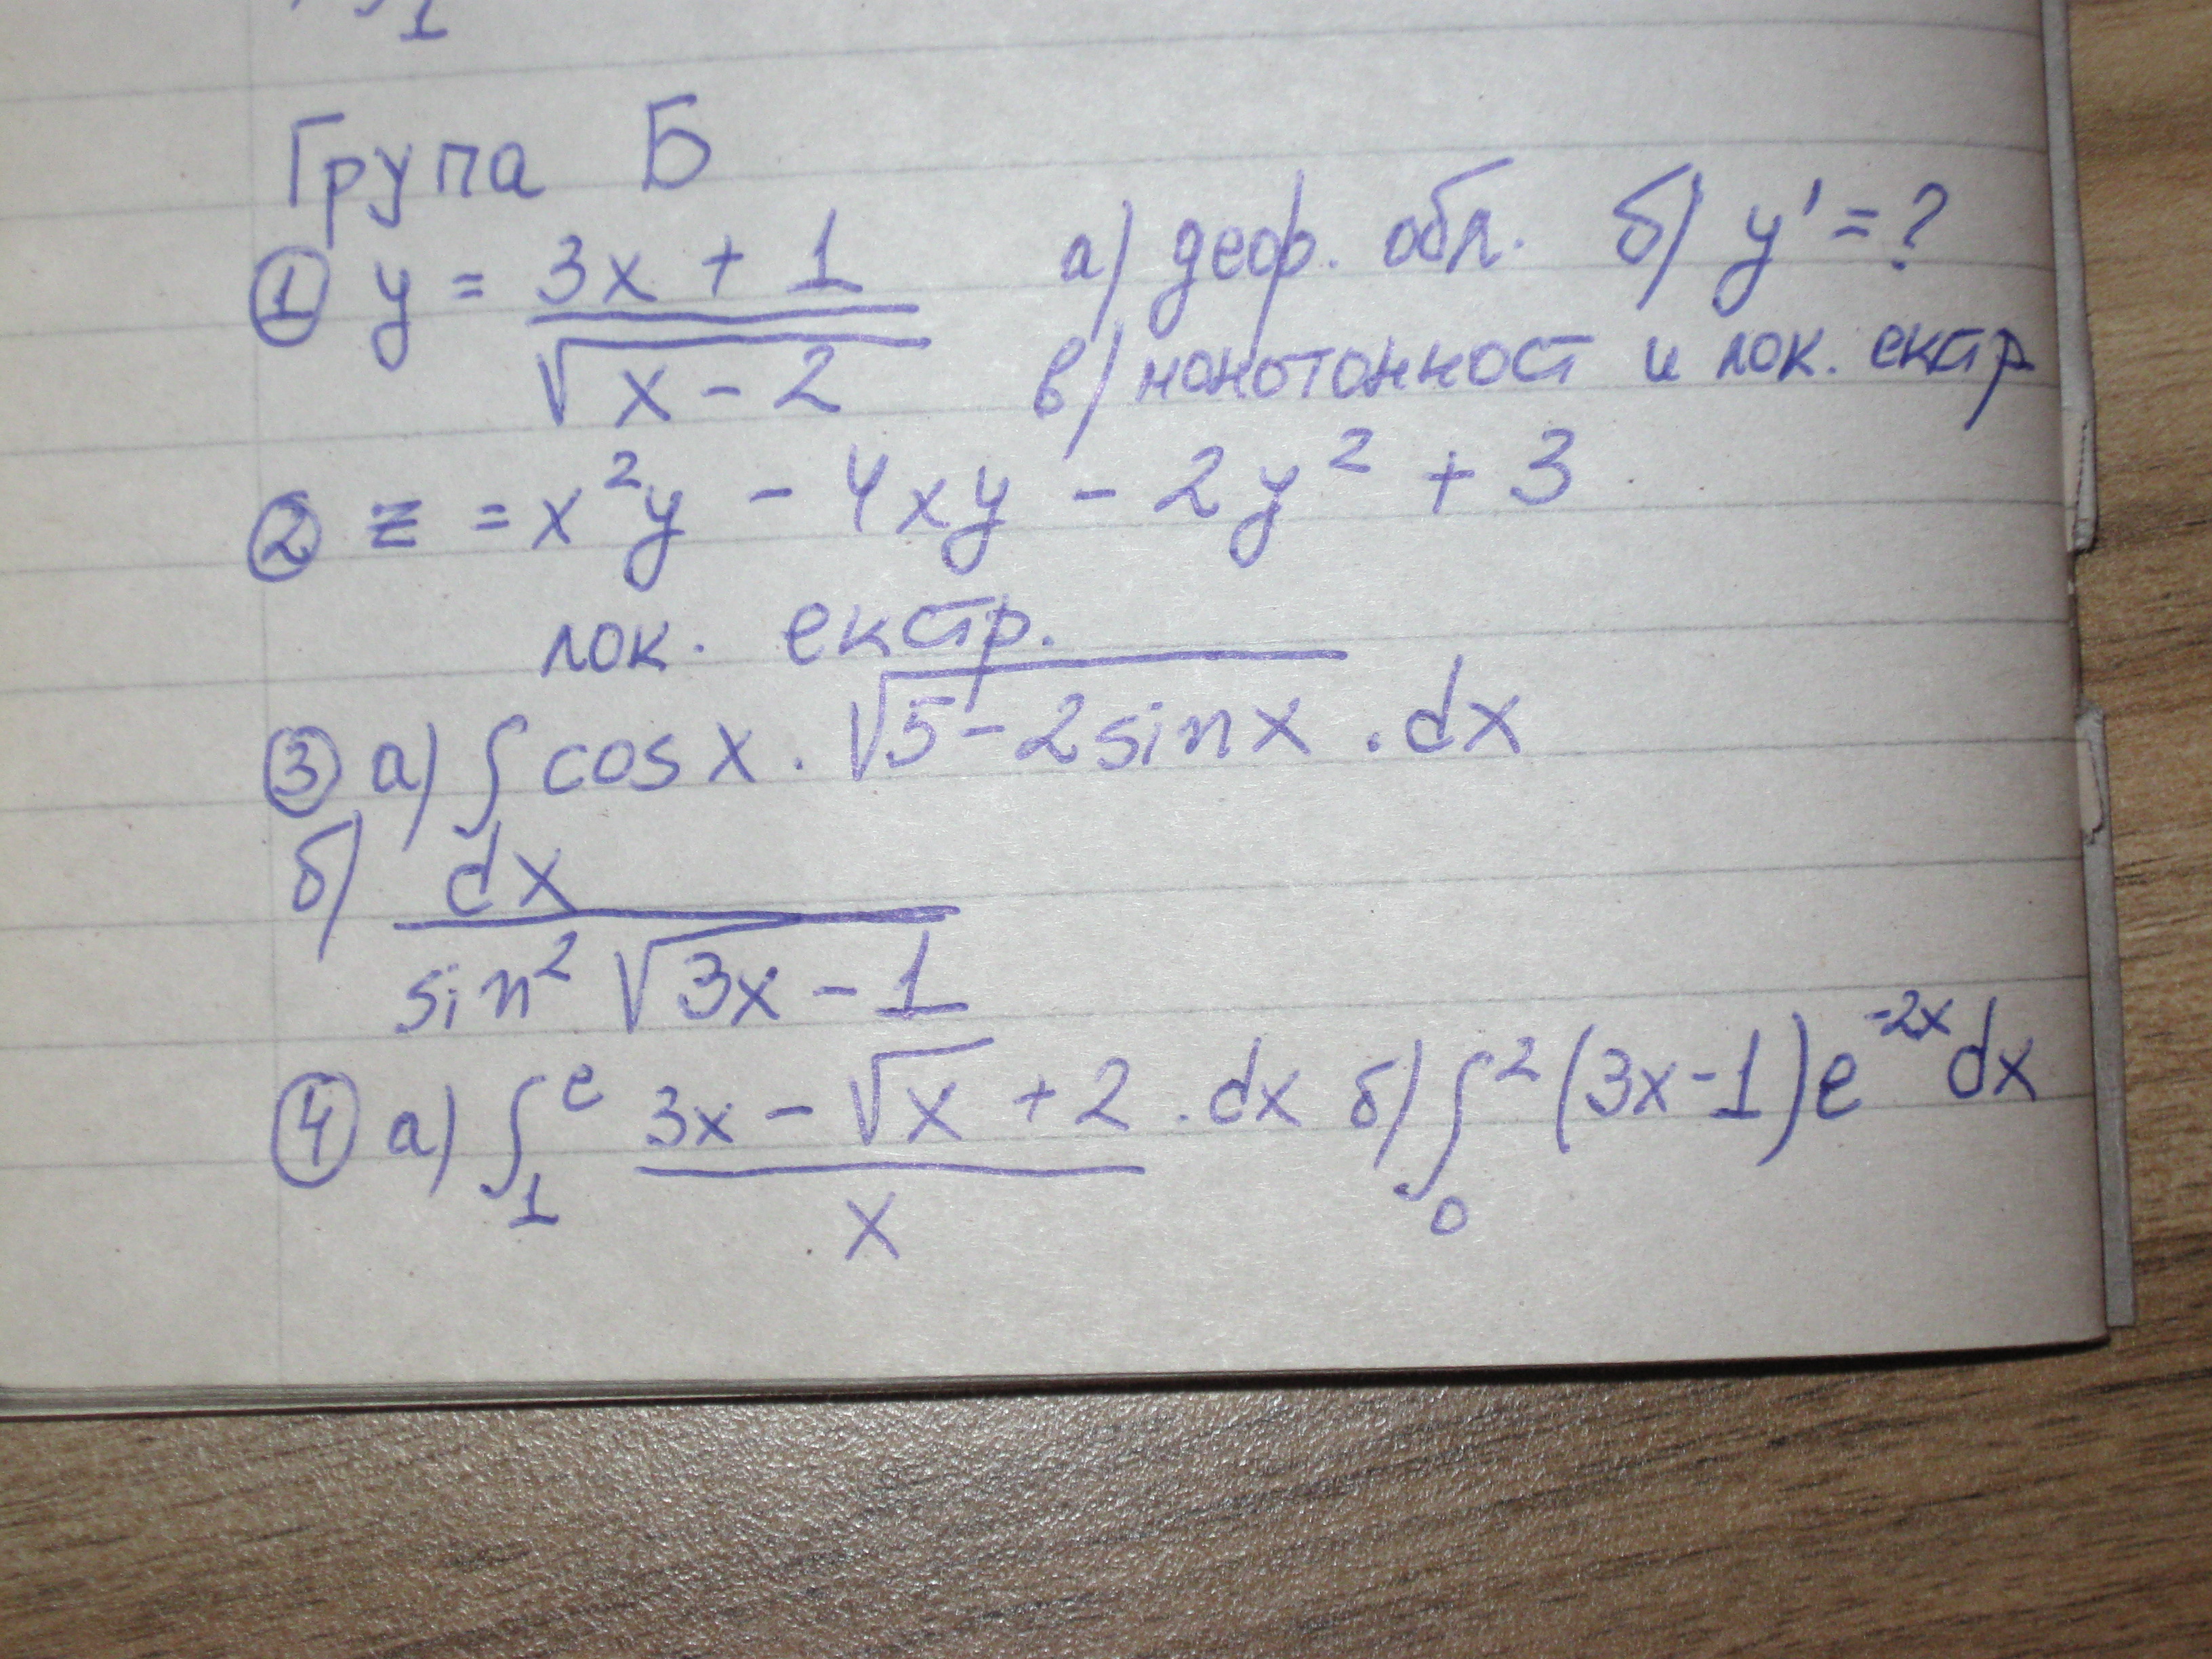 1
Група Б
① y = (3x + 1)/√(x - 2) а) деф. обл. б) y' = ?
в) монотонност и лок. екстр
② z = x²y - 4xy - 2y² + 3
лок. екстр.
③ а) ∫ cos x . √(5 - 2sin x) . dx
б) dx/(sin² √(3x - 1))
④ а) ∫₁ᵉ (3x - √x + 2)/x . dx б) ∫₀² (3x-1)e⁻²ˣ dx